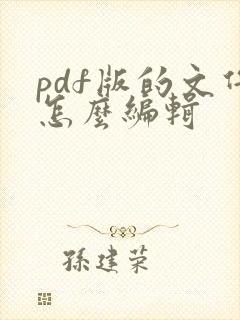 pdf版的文件
怎麼編輯
孫建荣